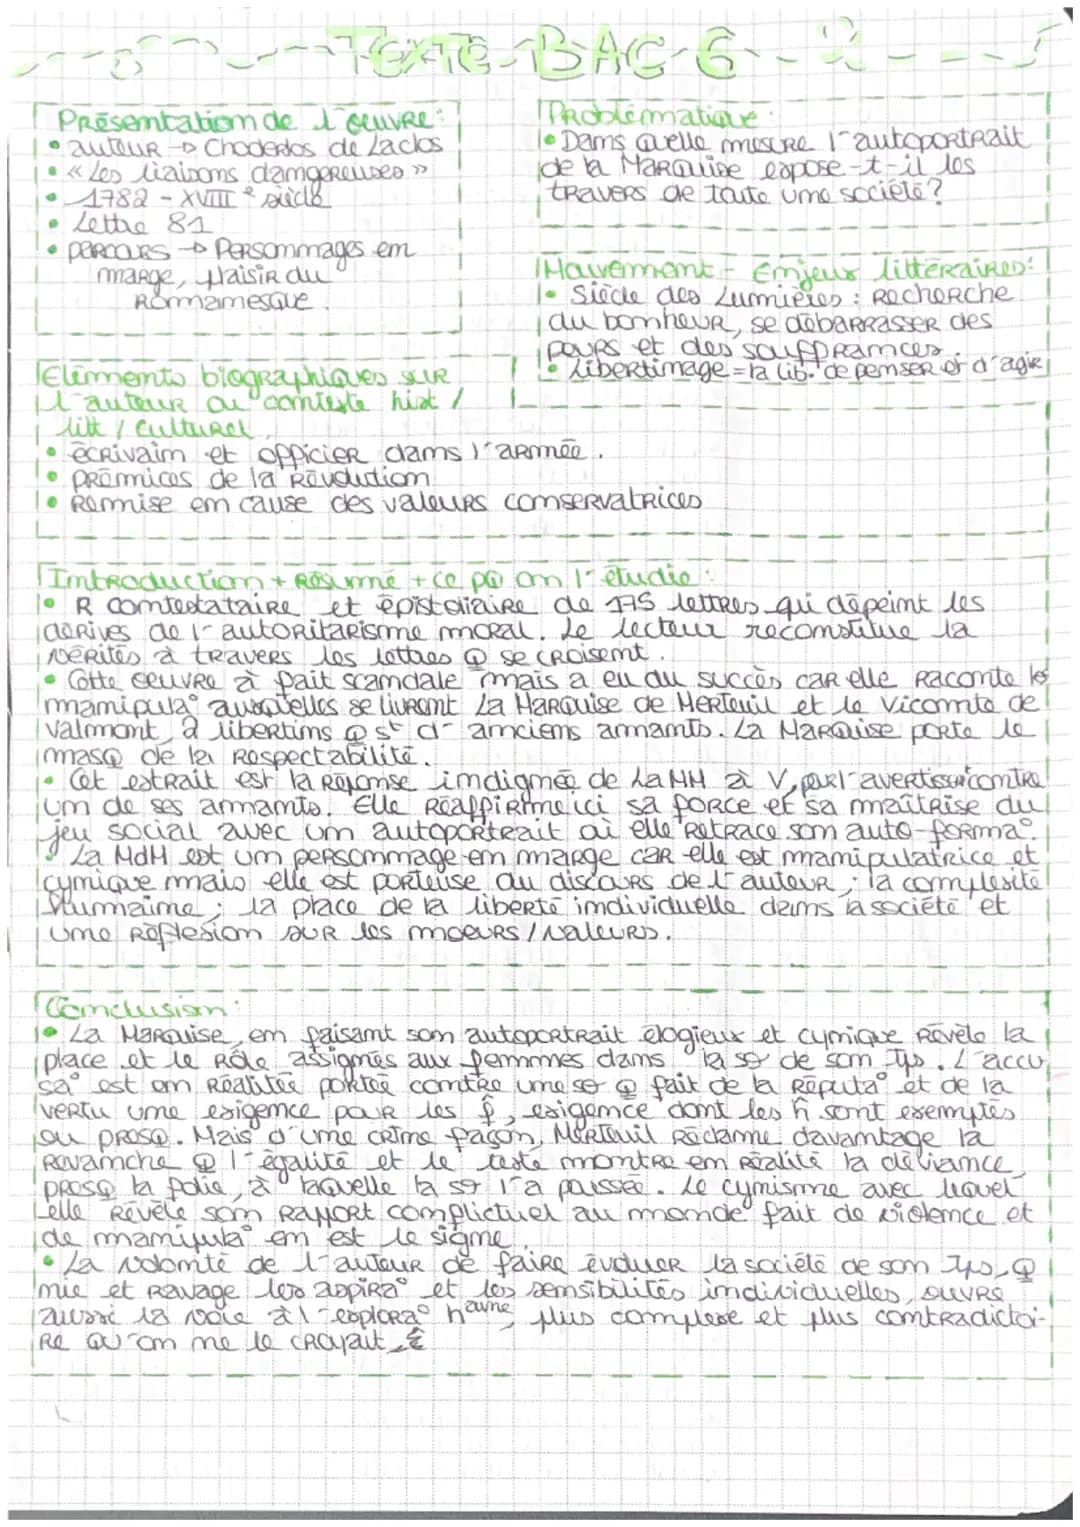 TEXTE BAC 6
Présentation de l'oeuvre:
• auteur → Choderlos de Laclos
• « Les liaisons dangereuses »
• 1782 - XVIIIe siècle
• Lettre 81
• parcours → Personnages en
marge, plaisir du
Romanesque.
Problématique:
• Dans quelle mesure l'autoportrait
de la Marquise expose-t-il les
travers de toute une société?
Mouvement - Enjeux littéraires:
• Siècle des Lumières : Recherche
du bonheur, se débarrasser des
peurs et des souffrances.
• Libertinage = la lib. de penser et d'agir
Elements biographiques sur
l'auteur ou contexte hist /
litt / culturel
• écrivain et officier dans l'armée.
• prémices de la Révolution
• Remise en cause des valeurs conservatrices
Introduction + Résumé + ce pq on l'étudie:
• R contestataire et épistolaire de 175 lettres qui dépeint les
dérives de l'autoritarisme moral. Le lecteur reconstitue la
vérités à travers les lettres Q se croisent.
• Cette oeuvre à fait scandale mais a eu du succès car elle raconte les
manipula° auxquelles se livrent La Marquise de Merteuil et le Vicomte de
Valmont, 2 libertins Q st d'anciens amants. La Marquise porte le
masQ de la Respectabilité.
• Cet extrait est la Réponse indignée de La MM à V, l'avertissait contre
un de ses amants. Elle Réaffirme ici sa force et sa maîtrise du
jeu social avec un autoportrait où elle retrace son auto-forma°.
• La MdM est un personnage en marge car elle est manipulatrice et
cynique mais elle est porteuse du discours de l'auteur ; la complexité
humaine ; la place de la liberté individuelle dans la société et
une Réflexion sur les moeurs / valeurs.
Conclusion:
• La Marquise, en faisant son autoportrait élogieux et cynique Révèle la
place et le Rôle assignés aux femmes dans la de son tps. L'accu
sa° est en Réalitée portée contre une Q fait de la Réputa° et de la
vertu une exigence pour les f, exigence dont les h sont exemptés
ou presQ. Mais d'une crtne façon, Merteuil Réclame davantage la
Revanche Q l'égalité et le texte montre en Réalité la déviance,
presQ la folie, à laquelle la l'a poussée. Le cynisme avec lequel
elle Révèle son Rapport conflictuel au monde fait de violence et
de manipula° en est le signe.
• La volonté de l'auteur de faire évoluer la société de son tps, Q
nie et Ravage les aspira° et les sensibilités individuelles, ouvre
aussi la voie à l'explora° haine, plus complexe et plus contradictoi-
Re qu'on ne le croyait,